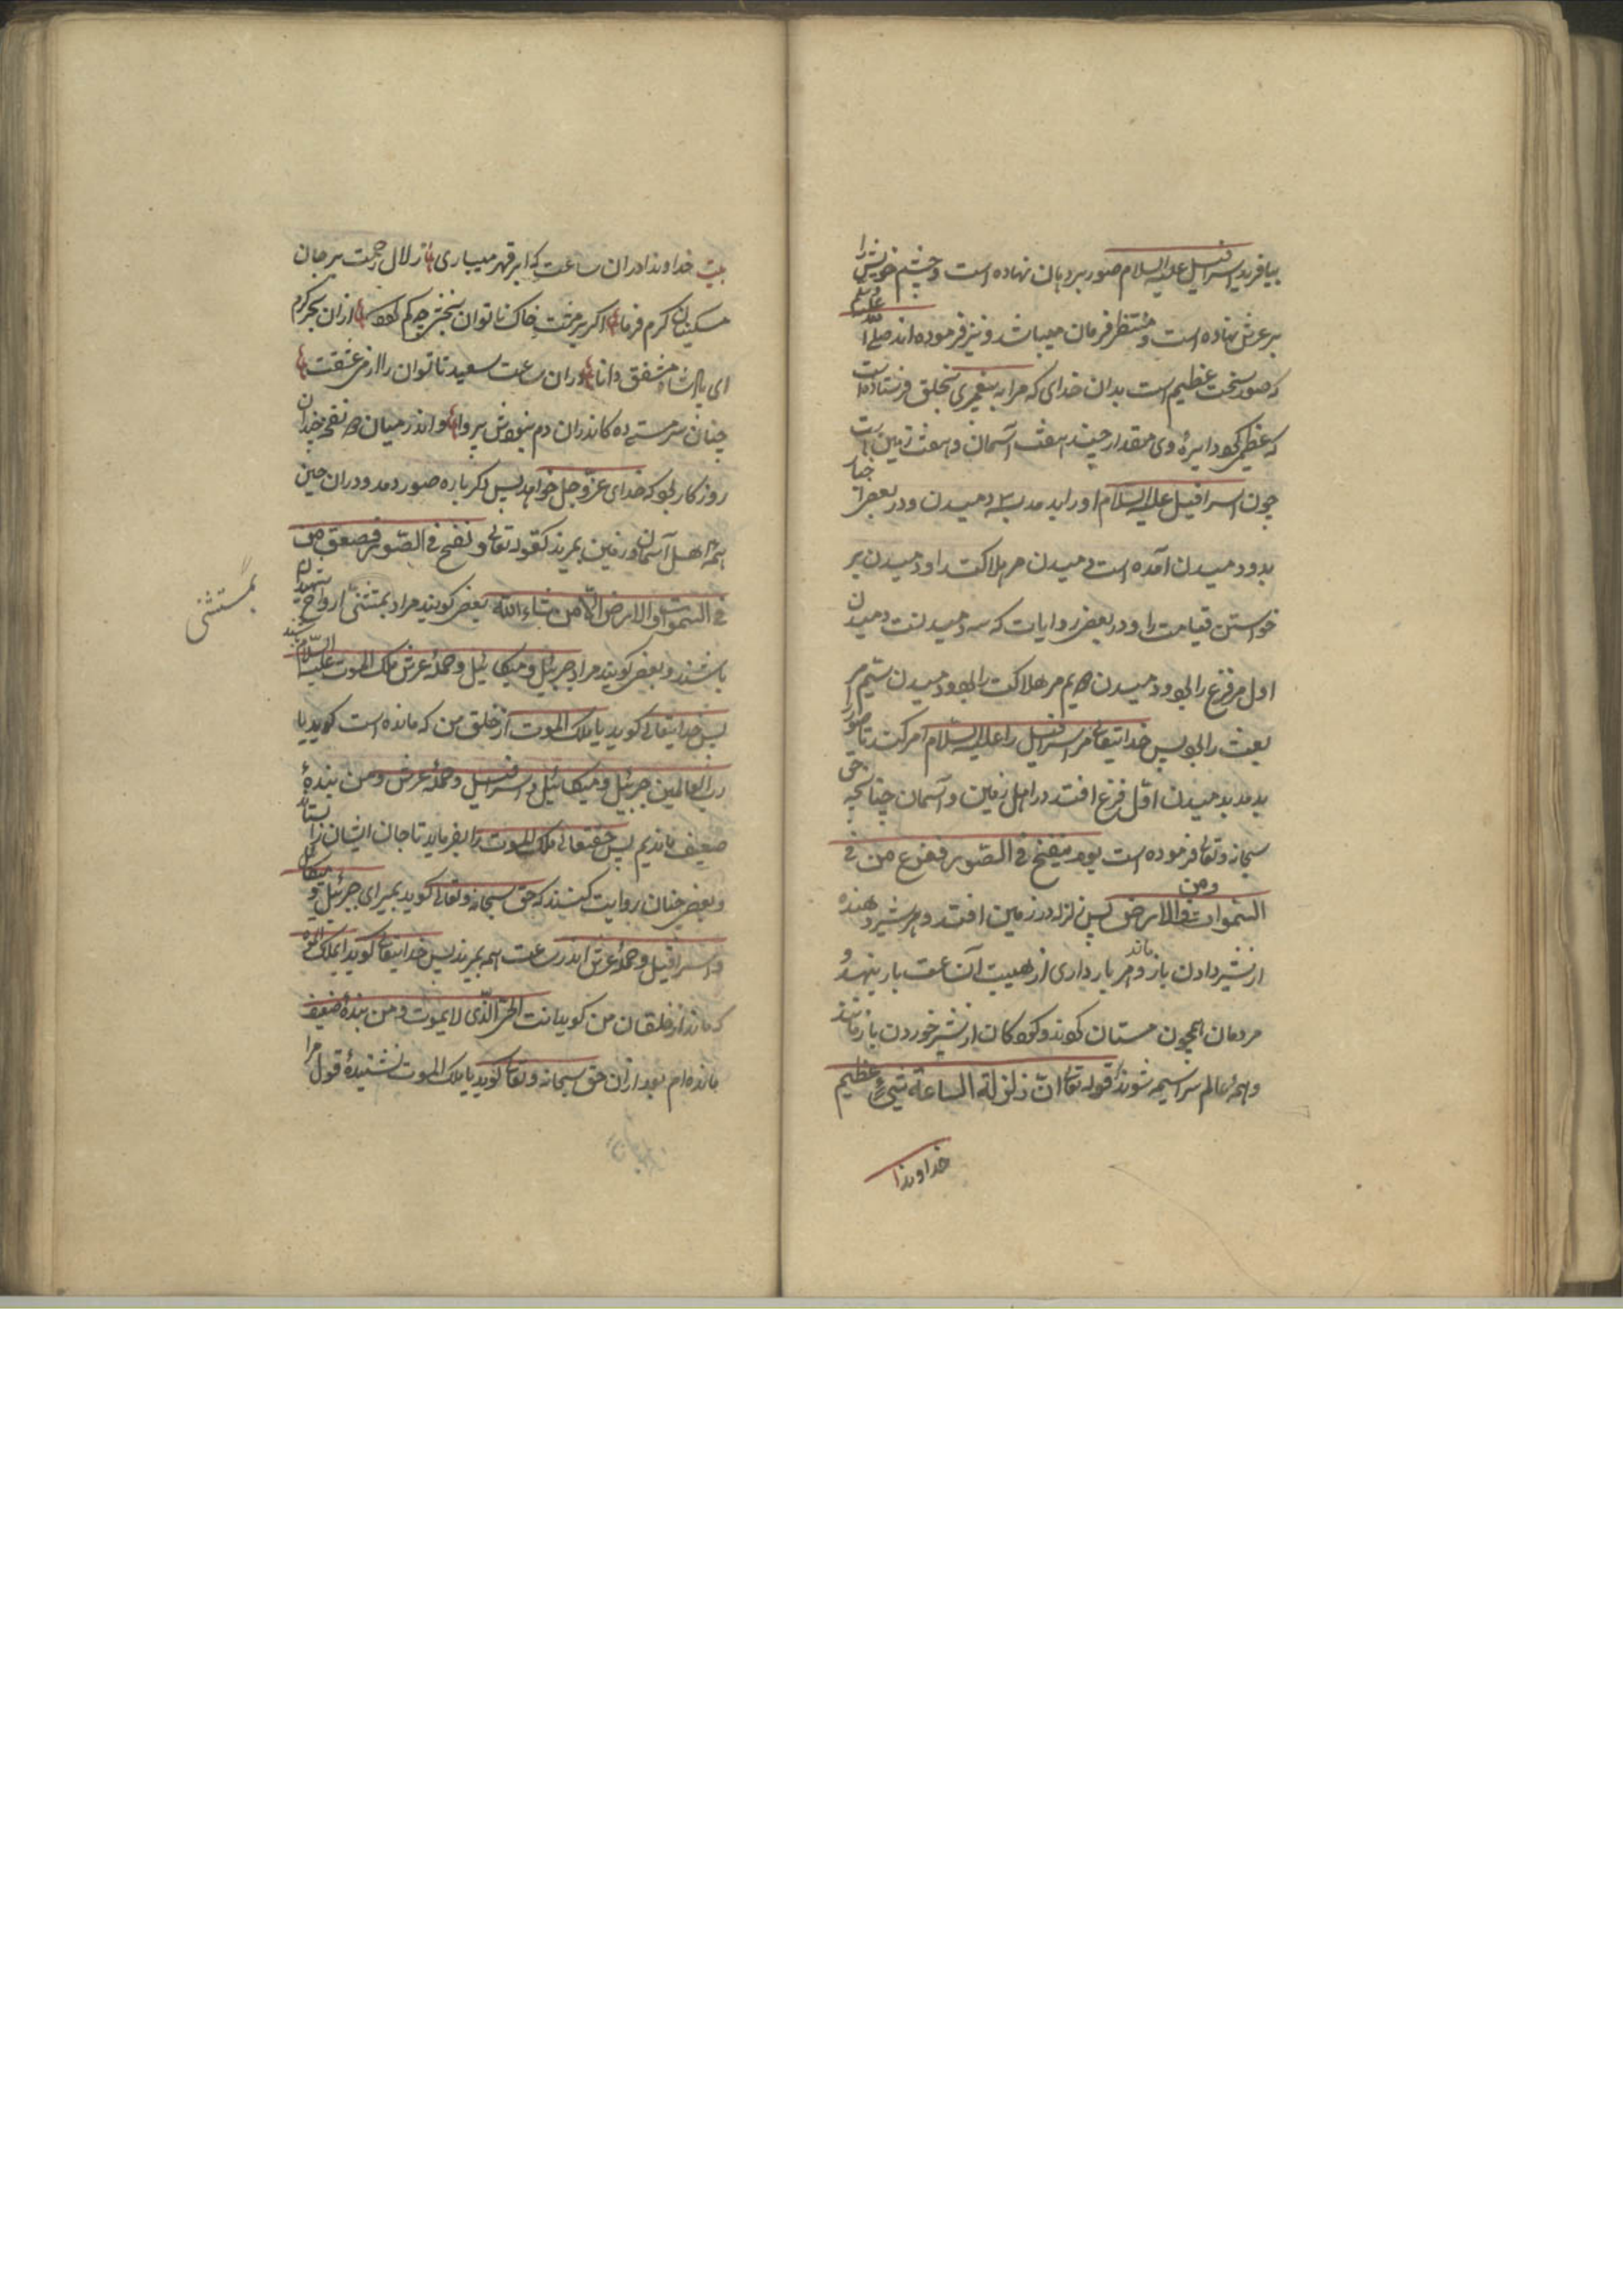 بیافرید اسرافیل علیه السلام صور بر دهان نهاده است و چشم خویش را
بر عرش نهاده است و منتظر فرمان میباشد و نیز فرموده اند صلی الله علیه وسلم
که صور سخت عظیم است بدان خدای که مرا به پیغمبری بخلق فرستاده است
که عظیمی دایرهٔ وی مقدار چند هفت آسمان و هفت زمین است
چون اسرافیل علیه السلام اورا بدمد بسه دمیدن ودر بعضی اخبار
بدو دمیدن آمده است دمیدن مر هلاکت را و دمیدن بر
خواستن قیامت را و در بعضی روایات که سه دمیدنست دمیدن
اول مر فزع را بود و دمیدن دویم مر هلاکت را بود و دمیدن سیم مر
بعث را بود پس خدایتعالی مر اسرافیل را علیه السلام امر کند تا صور را
بدمد بدمیدن اوّل فزع افتد در اهل زمین و آسمان چنانچه حق
سبحانه وتعالی فرموده است یوم ینفخ فی الصّور ففزع من فی
السّموات ومن فی الارض پس زلزله در زمین افتد و هر شیر دهنده
از شیر دادن باز ماند و هر بارداری از هیبت آن بار بنهد و
مردمان همچون مستان شوند و کودکان از شیر خوردن باز مانند
و همهٔ عالم سراسیمه شوند قوله تعالی انّ زلزلة الساعة شیءٌ عظیم
خداوندا
بیت خداوندا دران ساعت که ابر قهر میباری زلال رحمت بر جان
مسکینان کرم فرما اکر بر مشت خاک ناتوان بخشی چه کم ازان بحر کرم
ای پادشاه مشفق دانا دران ساعت سعید ناتوان را از می عشقت
چنان سرمستی ده کاندران دم نبودش پروا و اندر میان دو نفخه چندان
روزکار بود که خدای عزّوجل خواهد پس دکر باره صور دمد و دران حین
همه اهل آسمان و زمین بمیرند کقوله تعالی ونفخ فی الصّور فصعق من
فی السّموات والارض الاّ من شاء الله بعضی کویند مراد بمستثنی ارواح شهیدان
بمستثنی
باشند و بعضی کویند مراد جبرئیل و میکائیل و حملهٔ عرش ملک الموت علیه السّلام باشند
پس خدایتعالی کوید یا ملک الموت از خلق من که مانده است کوید یا
ربّ العالمین جبرئیل و میکائیل و اسرافیل و حملهٔ عرش و من بندهٔ
ضعیف ماندیم پس حقتعالی ملک الموت را بفرماید تا جان ایشان را بستاند
و بعضی چنان روایت کنند که حق سبحانه وتعالی کوید بمیر ای جبرئیل و میکائیل
و اسرافیل و حملهٔ عرش اندر ساعت همه بمیرند پس خدایتعالی کوید ای ملک الموت
که ماند از خلقان من کوید یا انت الحیّ الّذی لا یموت و من بندهٔ ضعیف
مانده ام بعد ازان حق سبحانه وتعالی کوید یا ملک الموت نشنیدهٔ قول مرا